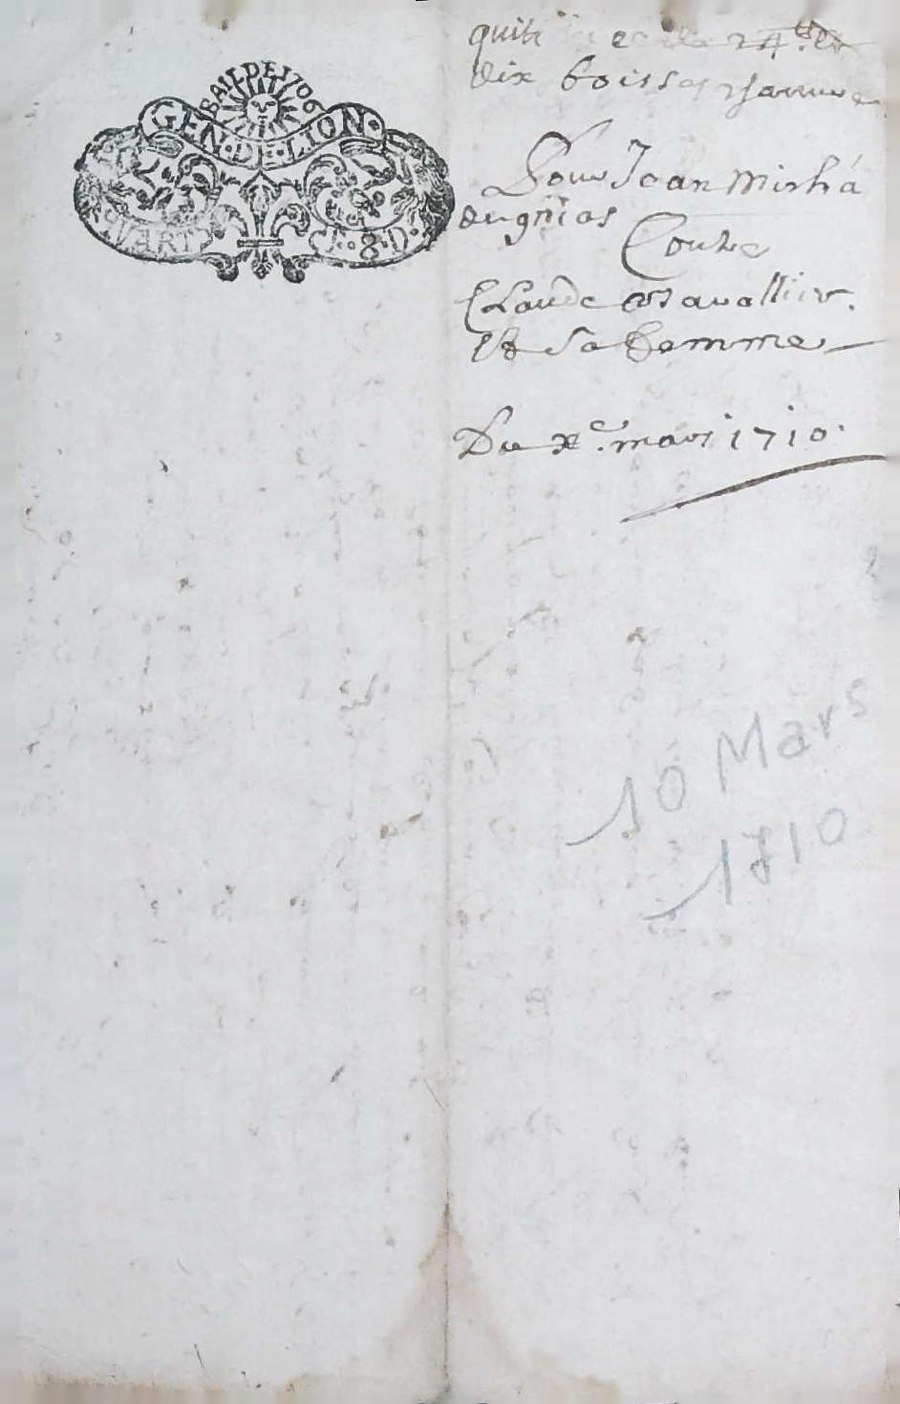 BAIL DE 1706
GEN·DE·LION·
QUART 1·8·D·
quit
dix boiss
Pour Jean Micha
Contre
Claude Chavallier.
Et Sa Femme
Du Xe. mars 1710.
10 Mars
1710